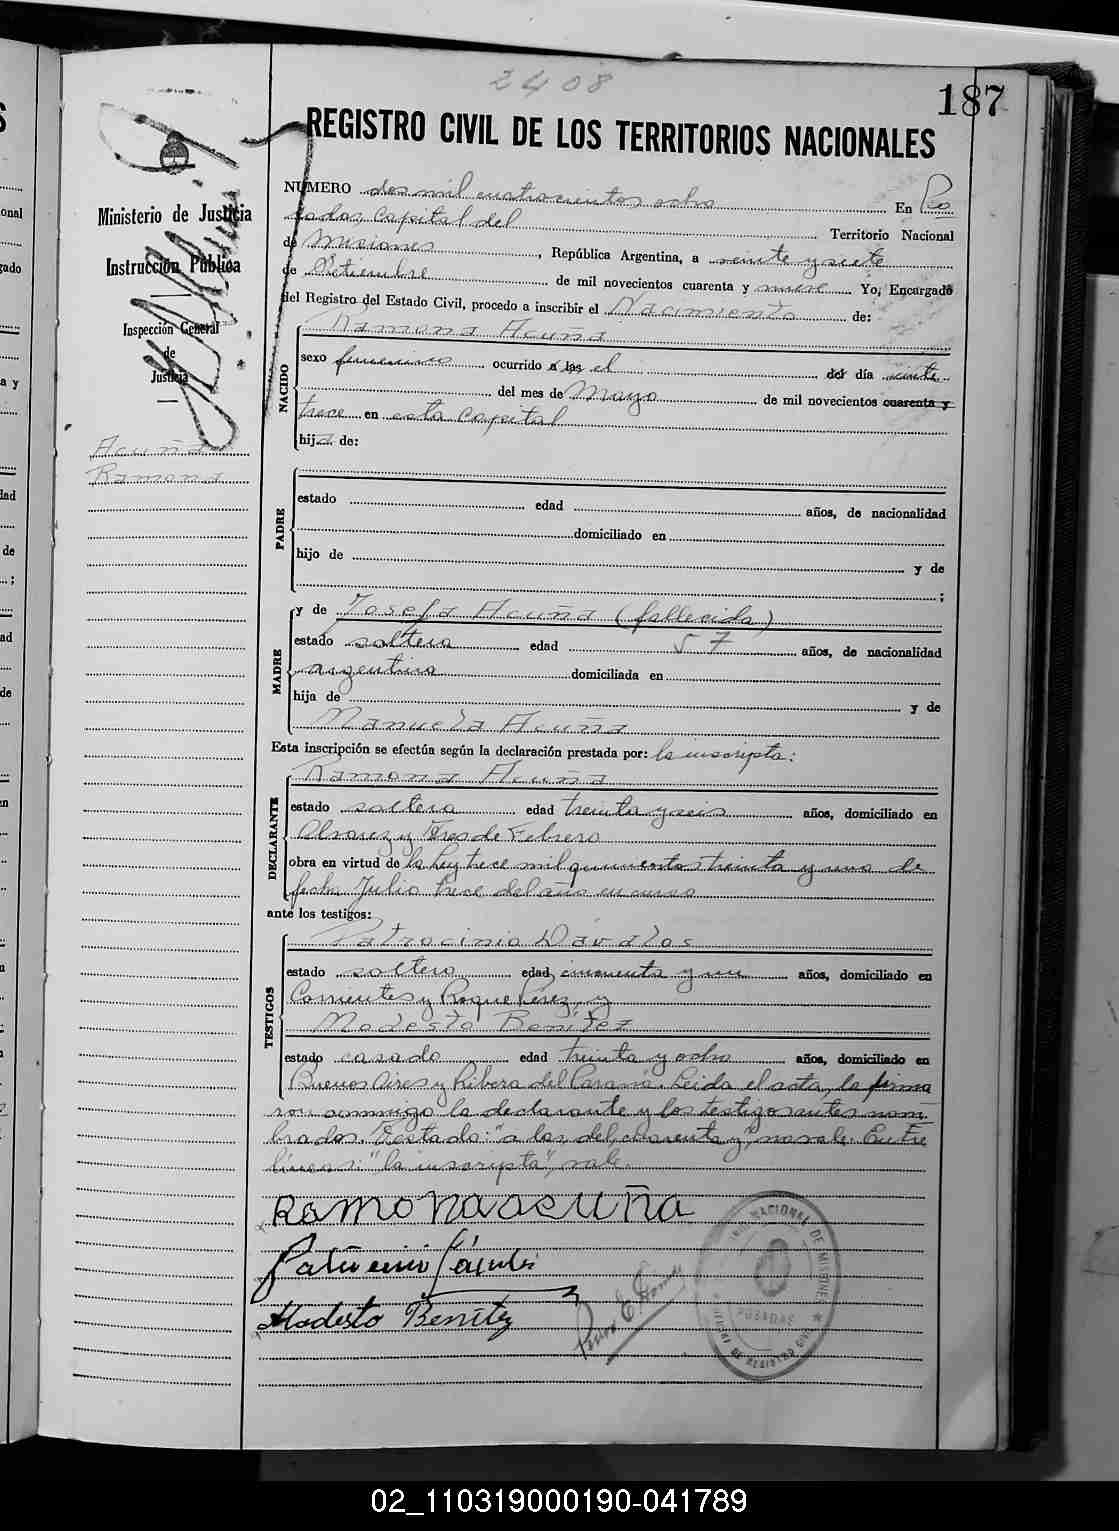 2408
187
REGISTRO CIVIL DE LOS TERRITORIOS NACIONALES
Ministerio de Justicia
Instrucción Pública
Inspección General
de
Justicia
Acuña
Ramona
NUMERO dos mil cuatrocientos ocho En Po
sadas, Capital del Territorio Nacional
de Misiones, República Argentina, a veinte y siete
de Setiembre de mil novecientos cuarenta y nueve Yo, Encargado
del Registro del Estado Civil, procedo a inscribir el Nacimiento de:
Ramona Acuña
NACIDO
sexo femenino ocurrido a las el del día veinte
del mes de Mayo de mil novecientos cuarenta y
trece en esta capital
hija de:
PADRE
estado edad años, de nacionalidad
domiciliado en
hijo de y de
;
MADRE
y de Josefa Acuña (fallecida)
estado soltera edad 57 años, de nacionalidad
argentina domiciliada en
hija de y de
Manuela Acuña
Esta inscripción se efectúa según la declaración prestada por: la inscripta:
DECLARANTE
Ramona Acuña
estado soltera edad treinta y seis años, domiciliado en
Alvarez y Tres de Febrero
obra en virtud de la ley trece mil quinientos treinta y uno de
fecha Julio trece del año en curso
ante los testigos:
TESTIGOS
Patrocinio Davalos
estado soltero edad cincuenta y un años, domiciliado en
Corrientes y Roque Perez, y
Modesto Benitez
estado casado edad treinta y ocho años, domiciliado en
Buenos Aires y Ribera del Paraná. Leida el acta, la firma
ron conmigo la declarante y los testigos antes nom
brados. Testado: "a las, del, cuarenta y", no vale. Entre
líneas: "la inscripta", vale.
Ramona acuña
Modesto Benítez
NACIONAL DE MISIONES
POSADAS
DE REGISTRO CIVIL
02_110319000190-041789